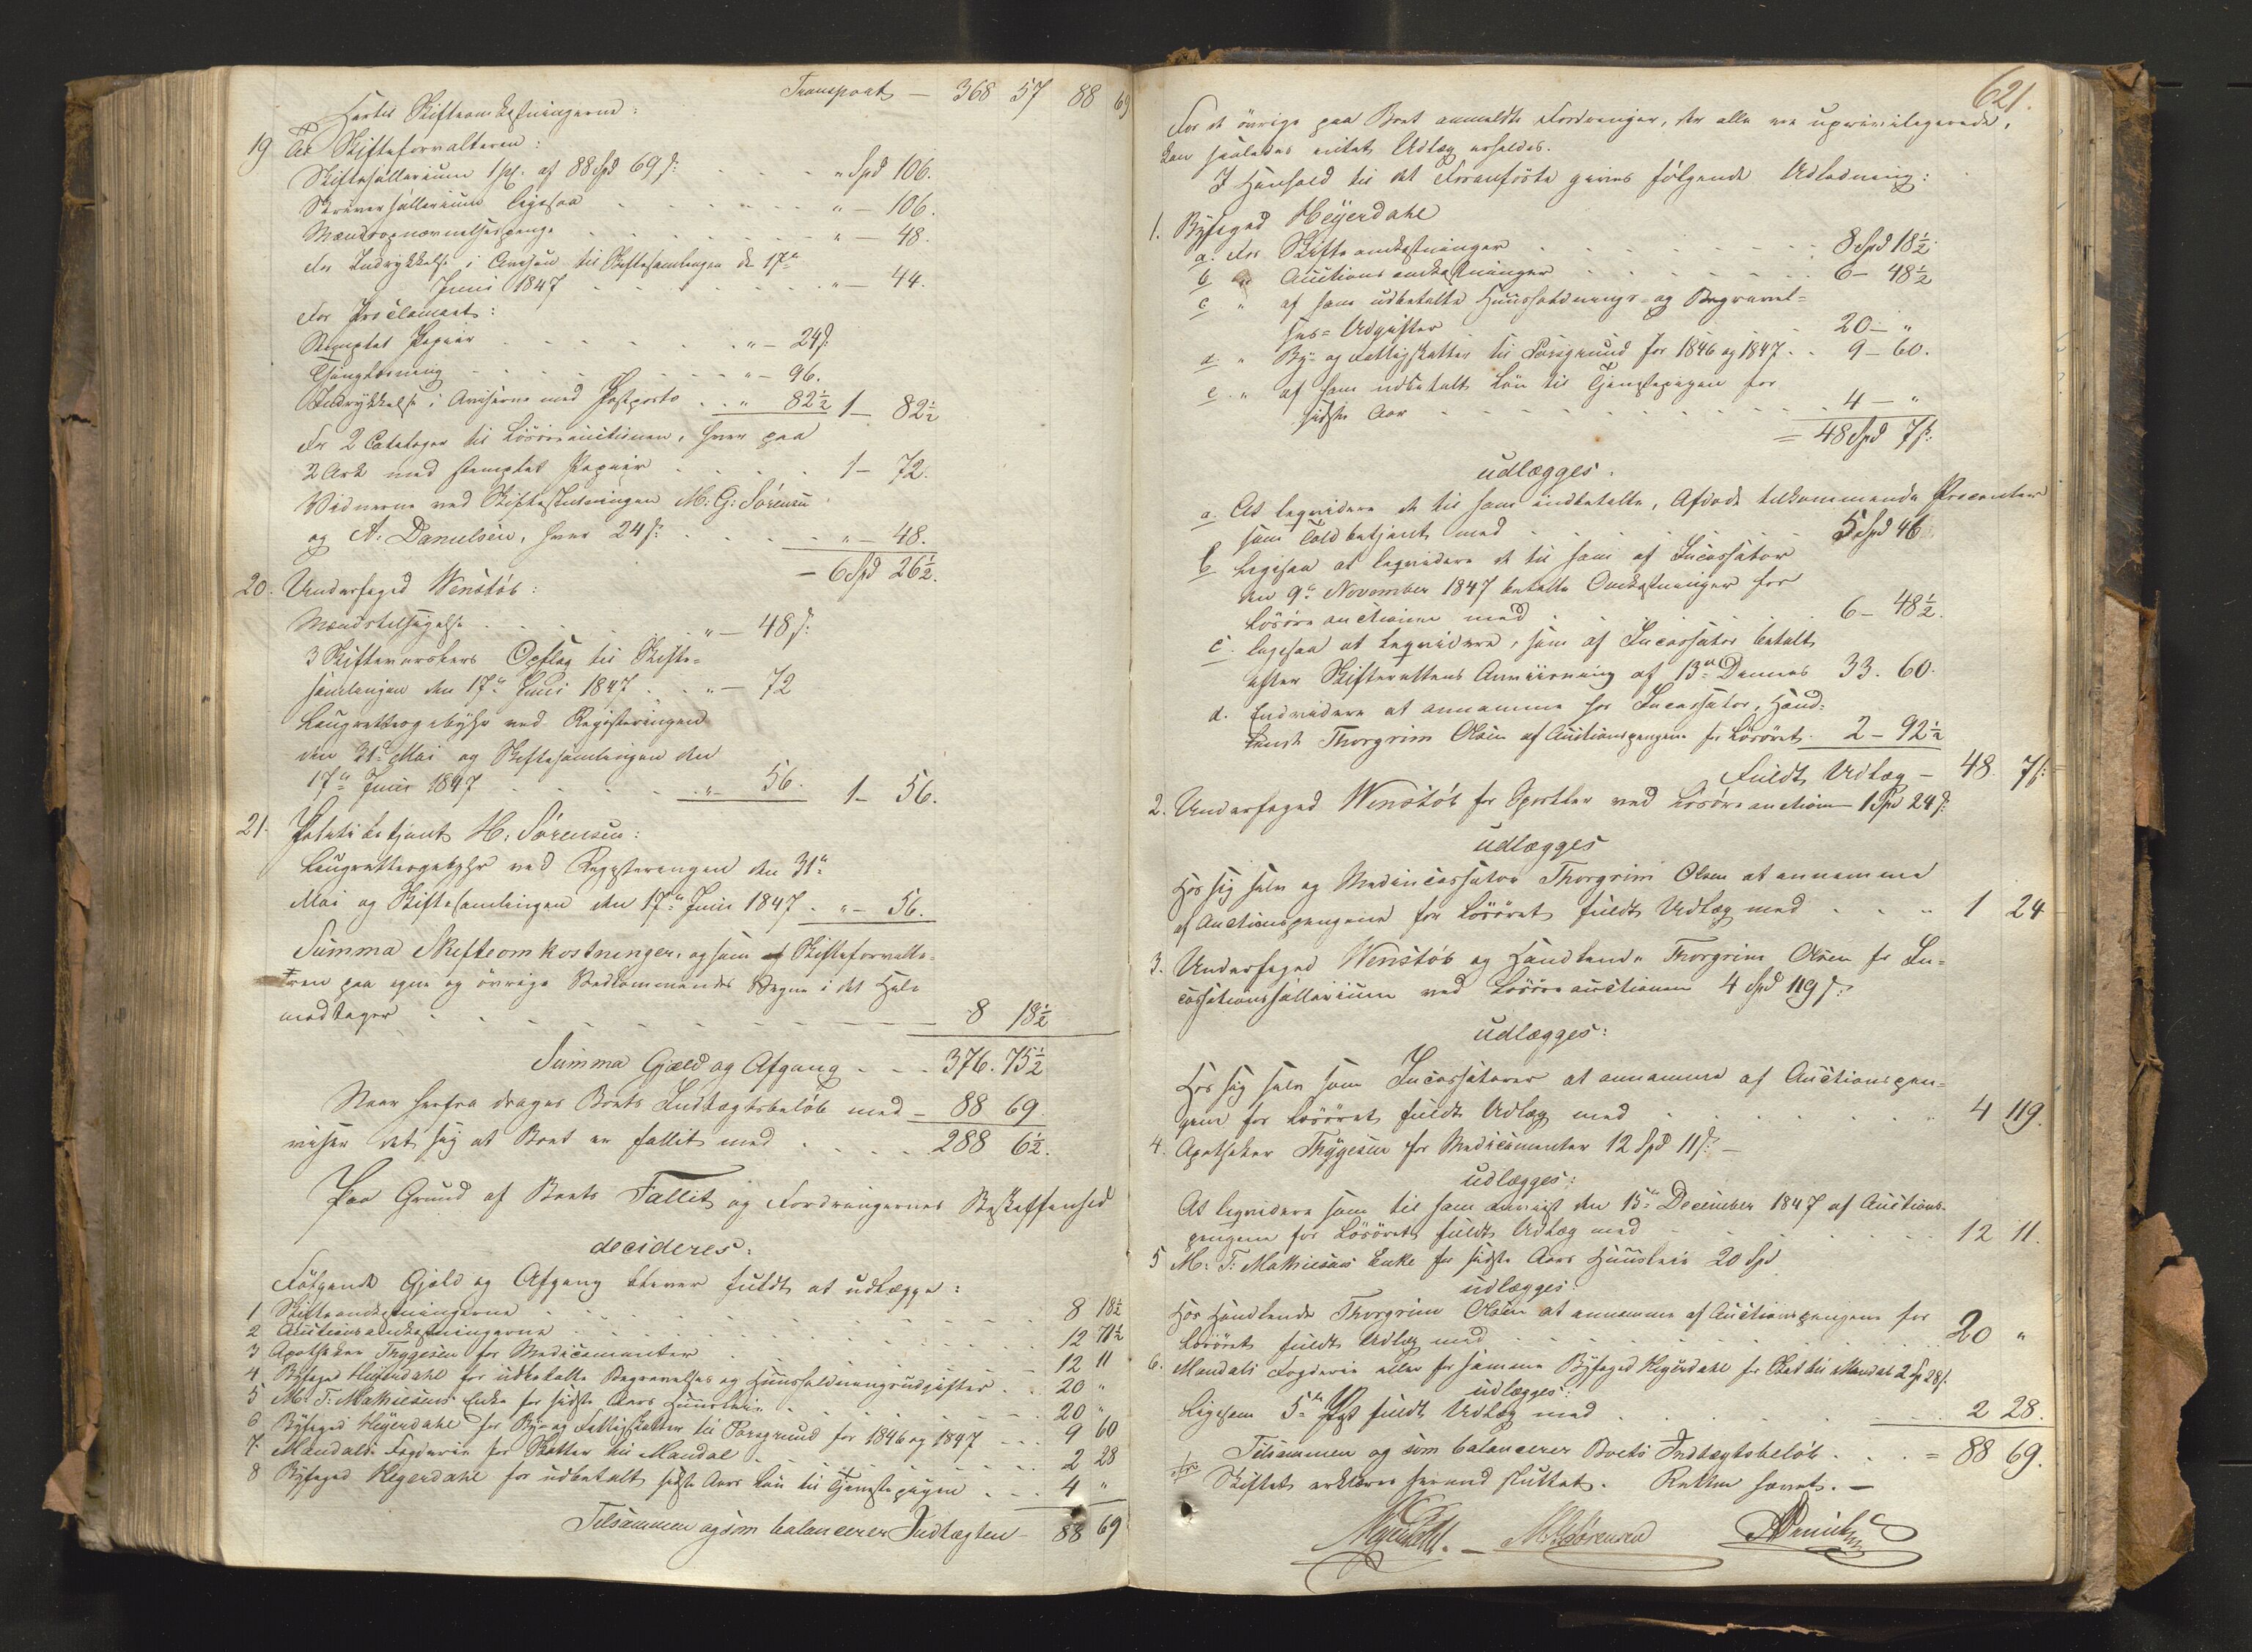 Transport — 368 57 88 69
Hertil Skifteomkostningerne:
19 Til Skifteforvalteren:
Skiftesallarium 1 pC. af 88 Spd 69 s: " Spd 106.
Skriversallarium ligesaa " — 106.
Mændsopnævnelsespenge " — 48.
For Indrykkelse i Avisen til Skiftesamlingen d. 17de
Juni 1847 " — 44.
For Proclamaet:
Stemplet Papiir " — 24 s:
Thinglæsning " — 96.
Indrykkelse i Aviserne med Postporto " 82½ 1 — 82½
For 2 Cataloger til Lösöreauctionen, hver paa
2 Ark med stemplet Papiir 1 — 72.
Vidnerne ved Skifteslutningen M. G. Sörensen
og A. Danielsen, hver 24 s: " — 48.
— 6 Spd 26½.
20. Underfoged Wenstöb:
Mændstilsigelse " — 48 s:
3 Skifteværkers Opslag til Skifte-
samlingen den 17de Juni 1847 " — 72
Laugrettesgebyhr ved Registeringen
den 31te Mai og Skiftesamlingen den
17de Juni 1847 " — 56. 1 — 56.
21. Politibetjent H. Sörensen:
Laugrettesgebyhr ved Registeringen den 31te
Mai og Skiftesamlingen den 17de Juni 1847 " — 56.
Summa Skifteomkostninger, og som af Skifteforvalte-
ren paa egne og övrige Vedkommendes Vegne i det Hele
modtages 8 18½
Summa Gjæld og Afgang 376. 75½
Naar herfra drages Boets Indtægtsbelöb med — 88 69.
viser det sig at Boet er fallit med 288 6½.
Paa Grund af Boets Fallit og Fordringernes Beskaffenhed
decideres:
Fölgende Gjæld og Afgang bliver fuldt at udlægge:
1 Skifteomkostningerne 8 18½
2 Auctionsomkostningerne 12 71½
3 Apotheker Thygesen for Medicamenter 12 11
4 Byfoged Heyerdahl for udbetalte Begravelses og Huusholdningsudgifter 20 "
5 M. T. Mathiesens Enke for sidste Aars Huusleie 20 "
6 Byfoged Heyerdahl for By- og Fattigskatter til Porsgrund for 1846 og 1847 9 60
7. Mandals Fogderie for Skatter til Mandal 2 28
8 Byfoged Heyerdahl for udbetalt sidste Aars Lön til Tjenestepigen 4 "
Tilsammen og som balancerer Indtægten — 88 69
621.
For de övrige paa Boet anmeldte Fordringer, der alle ere uprivilegerede,
kan saaledes intet Udlæg erholdes.
I Henhold til det Foranförte gives fölgende Udlodning:
1. Byfoged Heyerdahl
a. For Skifteomkostninger 8 Spd 18½
b " Auctionsomkostninger 6 — 48½
c " af ham udbetalte Huusholdnings- og Begravel-
ses-Udgifter 20 — "
d. " By- og Fattigskatter til Porsgrund for 1846 og 1847 9 — 60.
e. " af ham udbetalt Lön til Tjenestepigen for
sidste Aar 4 — "
= 48 Spd 7 s:
udlægges.
a. At liqvidere de til ham indbetalte, Afdöde tilkommende Procenter
som Toldbetjent med 5 Spd 46
b Ligesaa at liqvidere de til ham af Incassator
den 9de November 1847 betalte Omkostninger for
Lösöreauctionen med 6 — 48½.
c. Ligesaa at liqvidere, som af Incassator betalt
efter Skifterettens Anviisning af 13de Dennes 33. 60.
d. Endvidere at annamme hos Incassator, Hand-
lende Thorgrim Olsen af Auctionspengene for Lösöret 2 — 92½
Fuldt Udlæg — 48. 7 s:
2. Underfoged Wenstöb for Sportler ved Lösöreauction 1 Spd 24 s:
udlægges
Hos sig selv og Medincassator Thorgrim Olsen at annamme
af Auctionspengene for Lösöret fuldt Udlæg med 1 24
3. Underfoged Wenstöb og Handlende Thorgrim Olsen for In-
cassationssallarium ved Lösöreauctionen 4 Spd 119 s:
udlægges:
Hos sig selv som Incassatorer at annamme af Auctionspen-
gene for Lösöret fuldt Udlæg med 4 119.
4. Apotheker Thygesen for Medicamenter 12 Spd 11 s: —
udlægges:
At liqvidere som til ham anviist den 15de December 1847 af Auctions-
pengene for Lösöret fuldt Udlæg med 12 11.
5 M. T. Mathiesens Enke for sidste Aars Huusleie 20 Spd
udlægges:
Hos Handlende Thorgrim Olsen at annamme af Auctionspengene for
Lösöret fuldt Udlæg med 20 "
6. Mandals Fogderie eller for samme Byfoged Heyerdahl for Skat til Mandal 2 Sp 28 s.
udlægges:
Ligesom 5te Post fuldt Udlæg med 2 28.
Tilsammen og som balancerer Boets Indtægtsbelöb = 88 69.
Skiftet erklæres herved sluttet. Retten hævet. —
Heyerdahl. — M G Sörensen A Danielsen